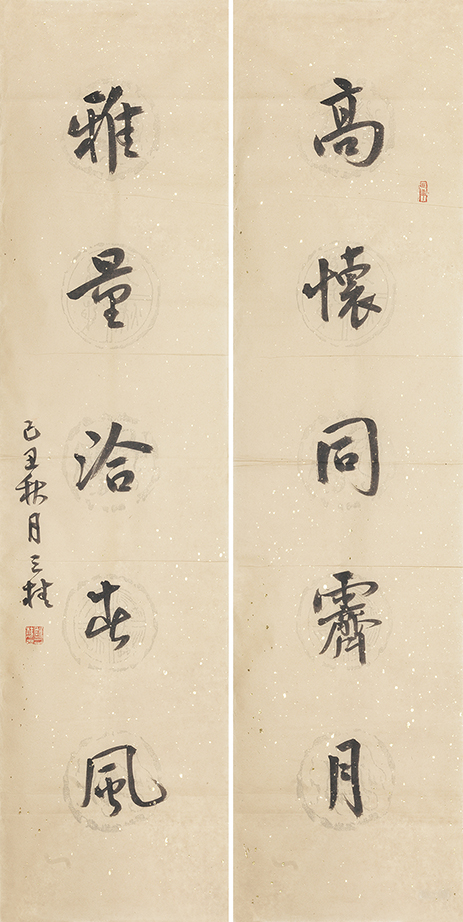 高懷同霽月
雅量洽春風
己丑秋月三桂